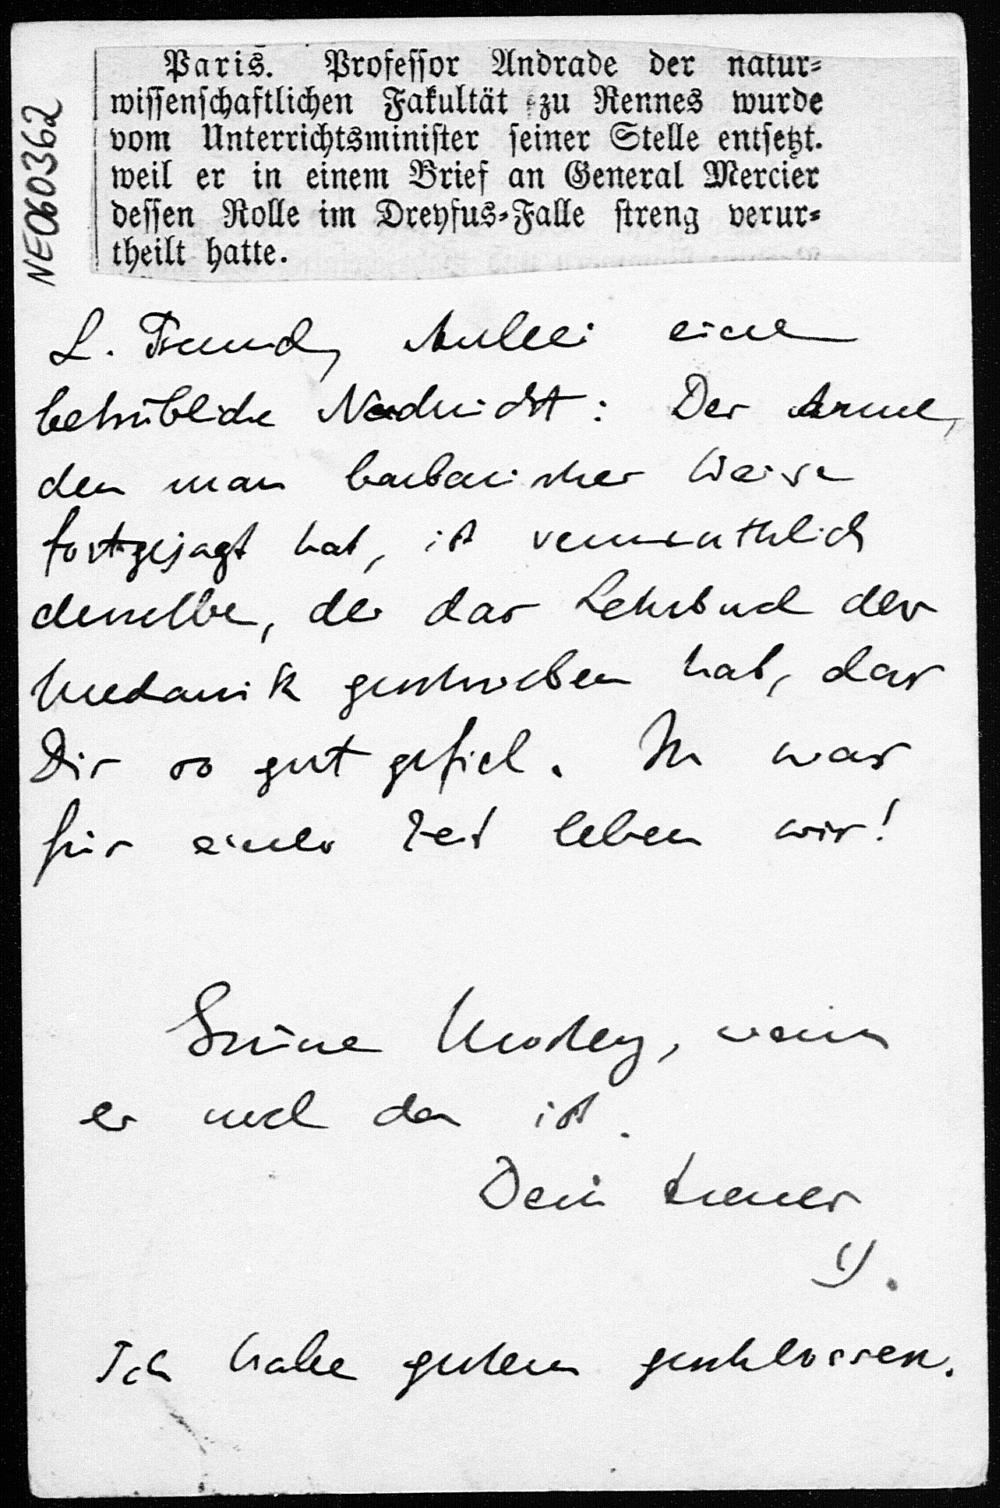 NE060362
Paris. Professor Andrade der natur=
wissenschaftlichen Fakultät zu Rennes wurde
vom Unterrichtsminister seiner Stelle entsetzt.
weil er in einem Brief an General Mercier
dessen Rolle im Dreyfus=Falle streng verur=
theilt hatte.
L. Freund, Anbei eine
betrübliche Nachricht: Der Arme,
den man barbarischer Weise
fortgejagt hat, ist vermuthlich
derselbe, der das Lehrbuch der
Mechanik geschrieben hat, das
Dir so gut gefiel. In was
für einer Zeit leben wir!
Grüne Moskey, wenn
er noch da ist.
Dein treuer
Ich habe gestern geschlossen.